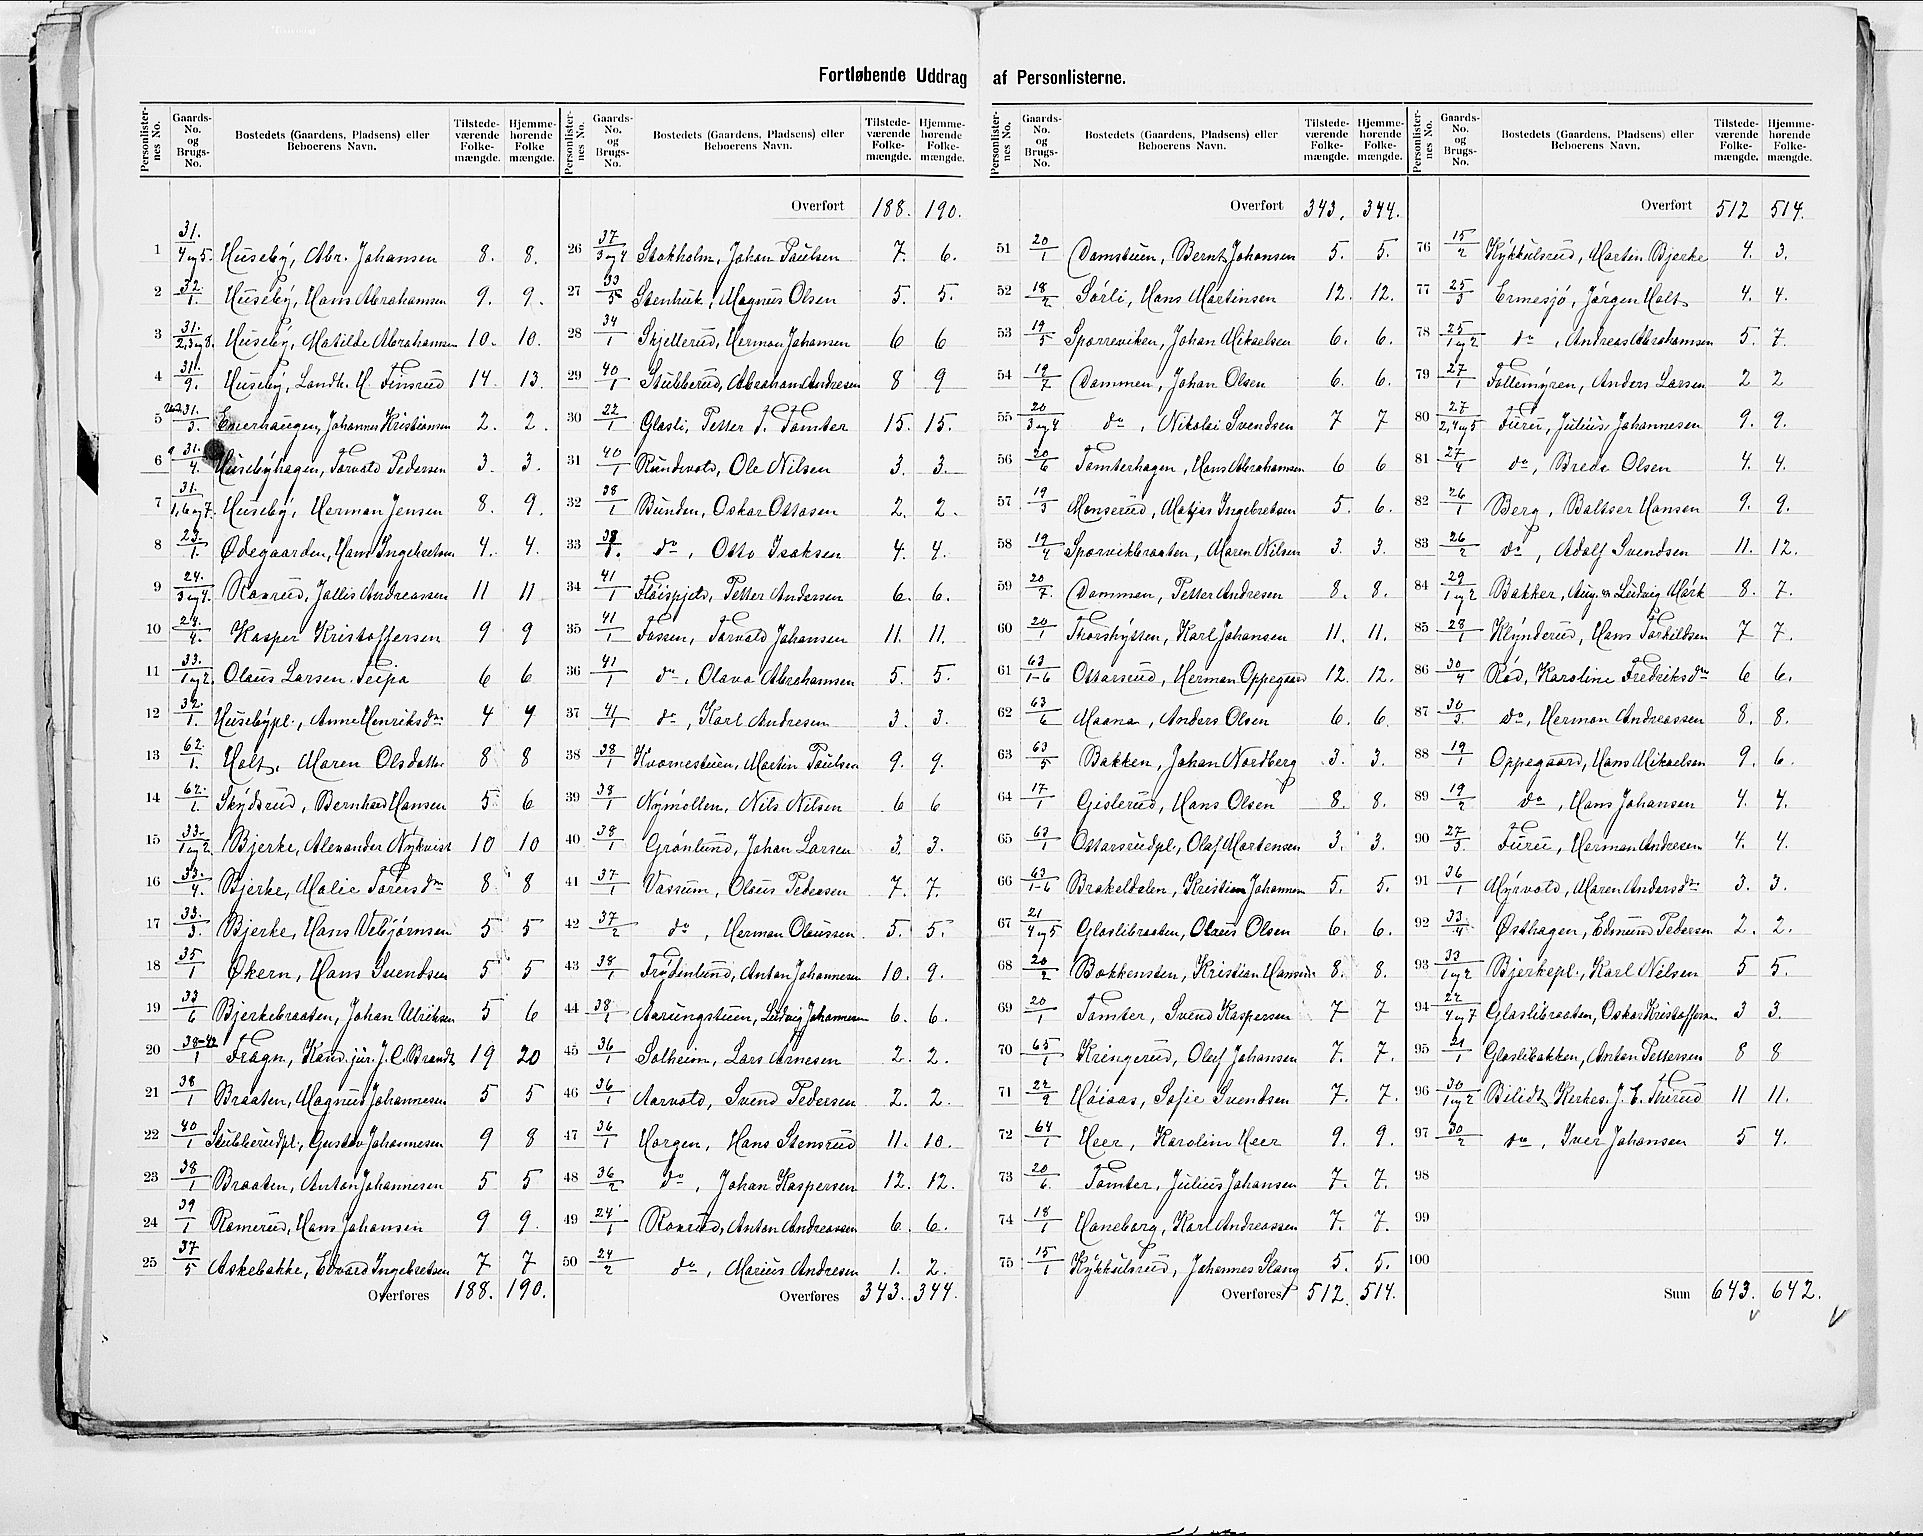 Fortløbende Uddrag af Personlisterne.
Personlisternes No. Gaards-No. og Brugs-No. Bostedets (Gaardens, Pladsens) eller Beboerens Navn. Tilstedeværende Folkemængde. Hjemmehørende Folkemængde.
1 31./4 og 5. Huseby, Abr. Johansen 8. 8.
2 32./1. Huseby, Hans Abrahamsen 9. 9.
3 31./2,3 og 8. Huseby, Matilde Abrahamsen 10. 10.
4 31./9. Huseby, Landh. H. Finsrud 14. 13.
5 31./3. Enerhaugen, Johannes Kristiansen 2. 2.
6 31./4. Husebyhagen, Torvald Pedersen 3. 3.
7 31./1,6 og 7. Huseby, Herman Jensen 8. 9.
8 23./1. Ødegaarden, Hans Ingebretsen 4. 4.
9 24./3 og 4. Ronrud, Jollis Andreassen 11 11
10 24./4. Kasper Kristoffersen 9 9
11 33./1 og 2. Olaus Larsen Teipa 6 6
12 32./1. Husebypl., Anne Henriksdtr 4 4
13 62./1. Holt, Maren Olsdatter 8 8
14 62./1. Skydsrud, Bernhard Hansen 5 6
15 33./1 og 2 Bjerke, Alexander Nykvist 10 10
16 33./4. Bjerke, Malie Toresdtr 8 8
17 33./3. Bjerke, Hans Vebjørnsen 5 5
18 35/1 Økern, Hans Svendsen 5 5
19 33/6 Bjerkebraaten, Johan Ulriksen 5 6
20 38-42/1 Frogn, Kand. jur. J. C. Brandt 19 20
21 38/1 Braaten, Magnus Johannesen 5 5
22 40/1 Stubberudpl., Gustav Johannesen 9 8
23 38/1 Braaten, Anton Johannesen 5 5
24 39/1 Ramerud, Hans Johansen 9 9.
25 37/5 Askebakke, Edvard Ingebretsen 7 7
Overføres 188. 190.
Personlisternes No. Gaards-No. og Brugs-No. Bostedets (Gaardens, Pladsens) eller Beboerens Navn. Tilstedeværende Folkemængde. Hjemmehørende Folkemængde.
Overført 188. 190.
26 37/3 og 4 Stokholm, Johan Paulsen 7. 6.
27 33/5 Stenhuk, Magnus Olsen 5. 5.
28 34/1 Skjellerud, Herman Johansen 6 6
29 40/1 Stubberud, Abraham Andresen 8 9
30 22/1 Glasli, Petter T. Tomter 15. 15.
31 40/1 Rundvold, Ole Nilsen 3. 3.
32 38/1 Bunden, Oskar Ottosen 2. 2.
33 38/1. do, Otto Isaksen 4. 4.
34 41/1 Fløispjeld, Petter Andersen 6. 6.
35 41/1 Fossen, Torvald Johansen 11. 11.
36 41/1 do, Olava Abrahamsen 5. 5.
37 41/1 do, Karl Andresen 3. 3.
38 38/1 Kvernestuen, Martin Paulsen 9. 9.
39 38/1 Nymøllen, Nils Nilsen 6 6
40 38/1 Grønlund, Johan Larsen 3. 3.
41 37/1 Vassum, Olaus Pedersen 7. 7.
42 37/2 do, Herman Olaussen 5. 5.
43 38/1 Frydenlund, Anton Johannesen 10. 9.
44 38/1 Aarungstuen, Ludvig Johannesen 6. 6.
45 36/1 Solheim, Lars Arnesen 2. 2.
46 36/1 Aarvold, Svend Pedersen 2. 2.
47 36/1 Horgen, Hans Stensrud 11. 10.
48 36/2 do, Johan Kaspersen 12. 12.
49 24/1 Ronrud, Anton Andreassen 6. 6.
50 24/2 do, Marius Andresen 1. 2.
Overføres 343. 344.
Personlisternes No. Gaards-No. og Brugs-No. Bostedets (Gaardens, Pladsens) eller Beboerens Navn. Tilstedeværende Folkemængde. Hjemmehørende Folkemængde.
Overført 343. 344.
51 20/1 Damstuen, Bernt Johansen 5. 5.
52 18/2 Sørli, Hans Martinsen 12. 12.
53 19/5 Sporreviken, Johan Mikaelsen 6. 6.
54 19/7 Dammen, Johan Olsen 6. 6.
55 20/3 og 4 do, Nikolai Svendsen 7 7
56 20/6 Tomterhagen, Hans Abrahamsen 6 6
57 19/3 Monserud, Matias Ingebretsen 5. 6.
58 19/4 Sporvikbraaten, Maren Nilsen 3. 3.
59 20/7. Dammen, Petter Andresen 8. 8.
60 20/1 Thorshytten, Karl Johansen 11. 11.
61 63/1-6 Ottarsrud, Herman Oppegaard 12. 12.
62 63/6 Maana, Anders Olsen 6. 6.
63 63/5 Bakken, Johan Nordberg 3. 3.
64 17/1 Gislerud, Hans Olsen 8. 8.
65 63/1 Ottarsrudpl., Olaf Mortensen 3. 3.
66 63/1-6 Brakeldalen, Kristian Johannesen 5. 5.
67 21/4 og 5 Glaslibraaten, Olaus Olsen 6. 6.
68 20/2 Bakkensten, Kristian Hansen 8. 8.
69 20/1 Tomter, Svend Kaspersen 7 7
70 65/1 Kringerud, Oluf Johansen 7. 7.
71 22/9 Høiaas, Sofie Svendsen 7. 7.
72 64/1 Heer, Karoline Heer 9. 9.
73 20/6. Tomter, Julius Johansen 7. 7.
74 18/1 Haneborg, Karl Andreassen 7. 7.
75 15/1 Kykkulsrud, Johannes Slang 5. 5.
Overføres 512. 514.
Personlisternes No. Gaards-No. og Brugs-No. Bostedets (Gaardens, Pladsens) eller Beboerens Navn. Tilstedeværende Folkemængde. Hjemmehørende Folkemængde.
Overført 512 514.
76 15/2 Kykkulsrud, Martin Bjerke 4. 3.
77 25/3 Ermesjø, Jørgen Holt 4. 4.
78 25/1 og 2 do, Andreas Abrahamsen 5. 7.
79 27/1 Follemyren, Anders Larsen 2 2
80 27/2,4 og 5 Furu, Julius Johannesen 9. 9.
81 27/4 do, Brede Olsen 4. 4.
82 26/1 Berg, Baltser Hansen 9. 9.
83 26/2 do, Adolf Svendsen 11. 12.
84 29/1 og 2 Bakker, Aug. & Ludvig Mørk 8. 7.
85 28/1 Klynderud, Hans Torkildsen 7 7.
86 30/4 Rød, Karoline Fredriksdtr 6 6.
87 30/3 do, Herman Andreassen 8. 8.
88 19/1 Oppegaard, Hans Mikaelsen 9. 6.
89 19/2 do, Hans Johansen 4. 4.
90 27/3 Furu, Herman Andresen 4. 4.
91 36/1 Myrvold, Maren Andersdtr 3. 3.
92 33/4 Østhagen, Edmund Pedersen 2. 2.
93 33/1 og 2 Bjerkepl., Karl Nilsen 5 5.
94 22/4 og 7 Glaslibraaten, Oskar Kristoffersen 3 3.
95 21/1 Glaslibakken, Anton Pettersen 8 8
96 30/1 og 2 Bilidt, Kirkes. J. E. Thirud 11 11.
97 30/2 do, Iver Johansen 5 4.
98
99
100
Sum 643. 642.